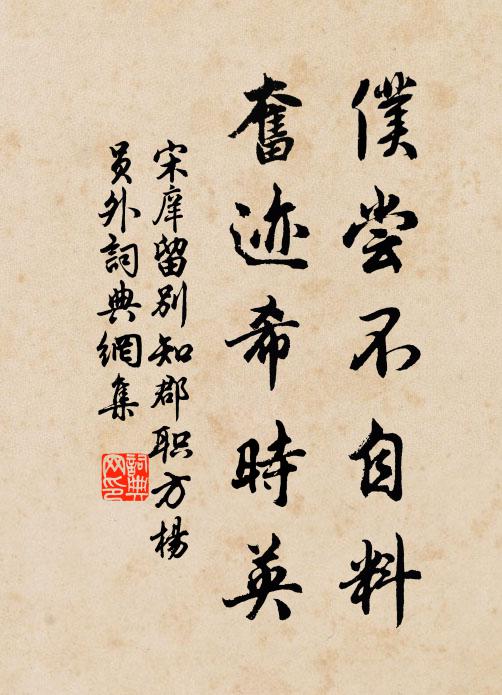 僕尝不自料
奮迹希時英
宋庠留別知郡职方楊
员外詞典網集
詞典
网印